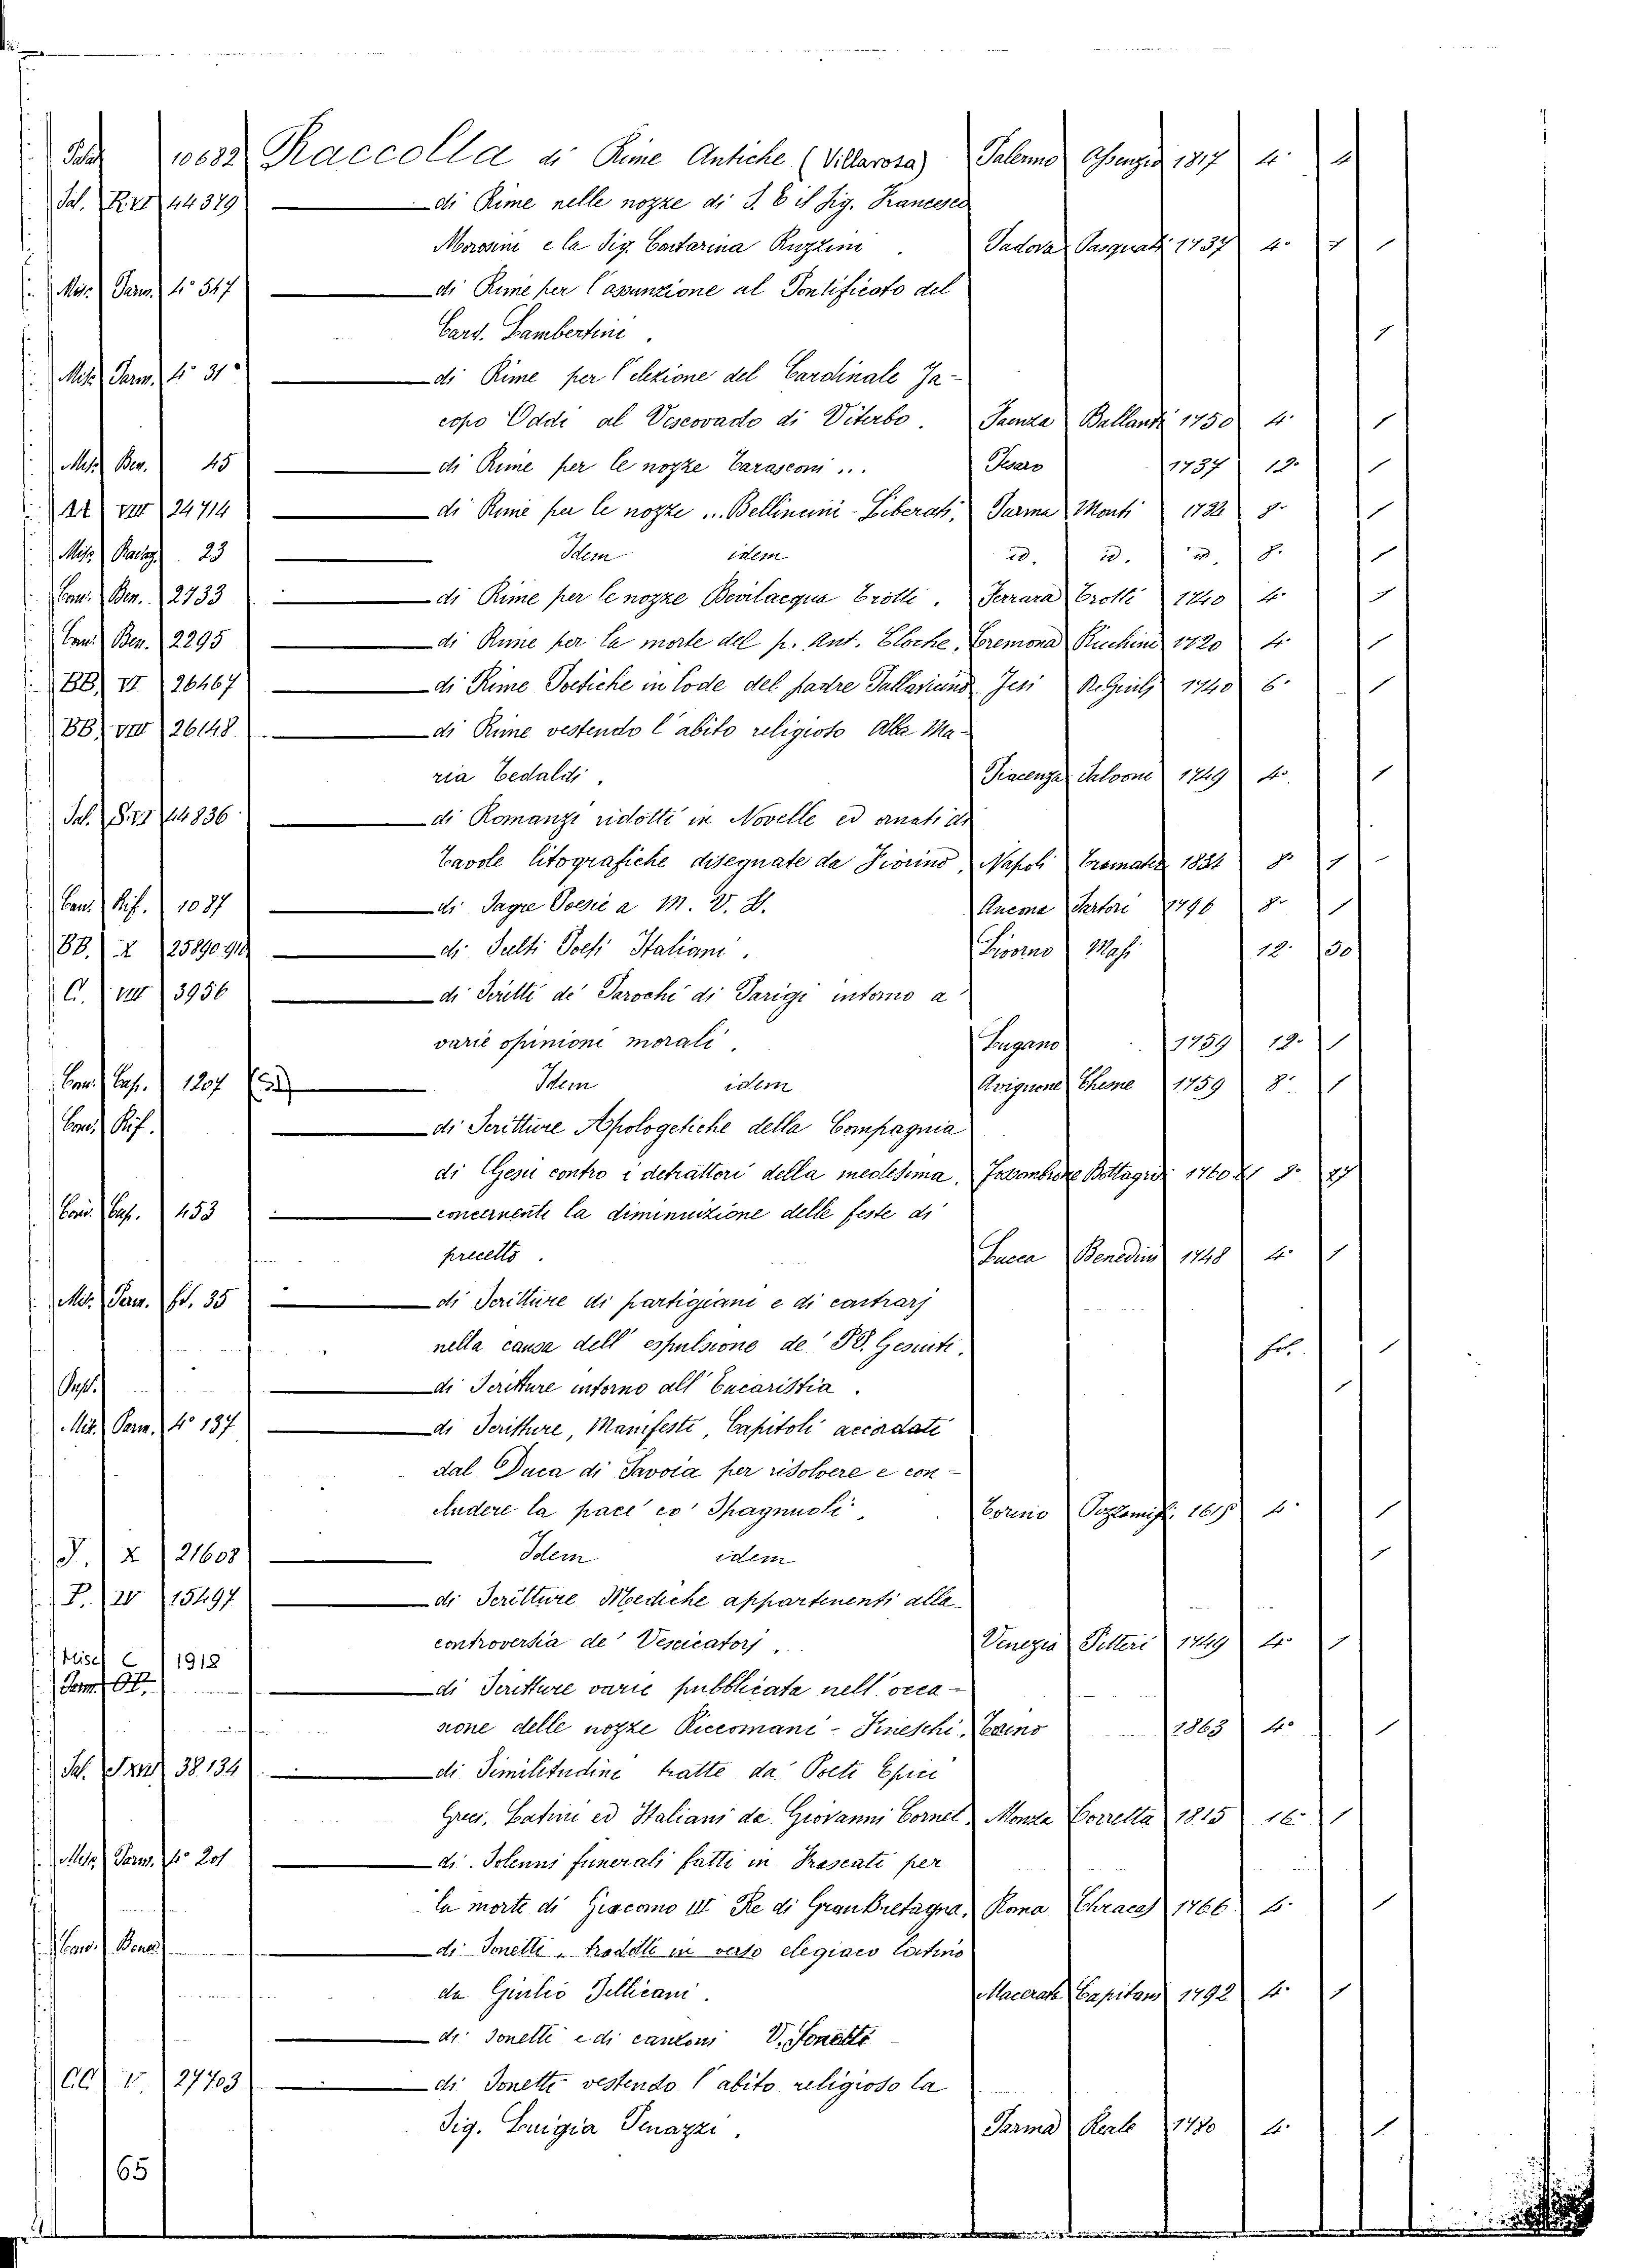 Palat 10682 Raccolta di Rime Antiche (Villarosa) Palermo Assenzio 1817 4. 4
Sal. R. VI 44379 — di Rime nelle nozze di S. E il Sig. Francesco
Morosini e la Sig. Cattarina Ruzzini . Padova Pasquati 1737 4. 1
Misc. Parm. 4o 547 — di Rime per l'assunzione al Pontificato del
Card. Lambertini . 1
Misc. Parm. 4o 31 — di Rime per l'elezione del Cardinale Ja-
copo Oddi al Vescovado di Viterbo . Faenza Ballanti 1750 4. 1
Misc. Ben. 45 — di Rime per le nozze Tarasconi ... Pesaro 1737 12. 1
AA VIII 24714 — di Rime per le nozze ... Bellincini-Liberati, Parma Monti 1722 8. 1
Misc. 23 — Idem idem id. id. id. 8. 1
Conv. Ben. 2733 — di Rime per le nozze Bevilacqua Trotti . Ferrara Trotti 1740 4. 1
Conv. Ben. 2295 — di Rime per la morte del p. Ant. Cloche, Cremona Ricchini 1720 4. 1
BB VI 26467 — di Rime Poetiche in lode del padre Pallavicino Jesi 1740 6. 1
BB VIII 26148 — di Rime vestendo l'abito religioso Alba Ma-
ria Cedaldi , Piacenza Salvoni 1749 4. 1
Sal. 44836 — di Romanzi ridotti in Novelle ed ornati di
Tavole litografiche disegnate da Fiorino, Napoli Tramater 1834 8. 1
Conv. Rif. 1087 — di Sagre Poesie a M. V. S. Ancona Sartori 1796 8. 1
BB. X 25890.910 — di Sulti Poesi Italiani . Livorno Masi 12. 50
C. VIII 3956 — di Scritti de' Parochi di Parigi intorno a
varie opinioni morali . Lugano 1759 12. 1
Conv. Cap. 1207 — Idem idem Avignone Theme 1759 8. 1
Conv. Rif. — di Scritture Apologetiche della Compagnia
di Gesù contro i detrattori della medesima, Fossombrone Bottagrisi 1760 8. 27
Conv. Cap. 453 — concernente la diminuizione delle feste di
precetto . Lucca Benedini 1748 4. 1
Misc. Parm. fol. 35 — di Scritture di partigiani e di contrarj
nella causa dell' espulsione de' PP. Gesuiti, fol. 1
— di Scritture intorno all'Eucaristia . 1
Misc. Parm. 4o 137 — di Scritture, Manifesti, Capitoli accordati
dal Duca di Savoia per risolvere e con-
chiudere la pace co' Spagnuoli, Torino 4. 1
J. X 21608 — Idem idem 1
P. IV 15497 — di Scritture Mediche appartenenti alla
controversia de' Vescicatorj . Venezia Pitteri 1749 4. 1
Misc C 1918
Parm. — di Scritture varie pubblicata nell' occa-
sione delle nozze Riccomani-Fineschi, Torino 1863 4. 1
Sal. 38.134 — di Similitudini tratte da' Poeti Epici
Greci, Latini ed Italiani da Giovanni Cornet, Monza Corretta 1815 16. 1
Misc. Parm. 4o 201 — di Solenni funerali fatti in Frascati per
la morte di Giacomo III Re di Gran Bretagna, Roma Chracas 1766 4. 1
Conv. Bened. — di Sonetti, tradotti in verso elegiaco latino
da Giulio Pellicani . Macerata Capitani 1792 4. 1
— di Sonetti e di canzoni V. Sonetti
CC V. 27703 — di Sonetti vestendo l'abito religioso la
Sig. Luigia Penazzi . Parma Reale 1780 4. 1
65